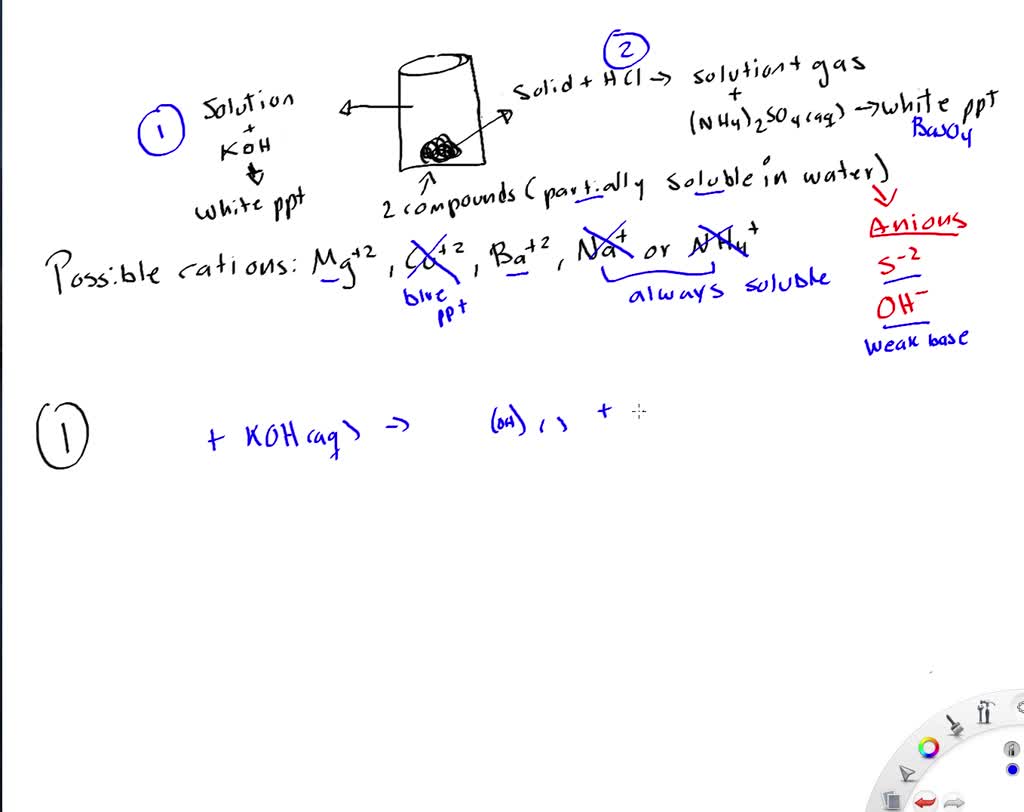 ②
① Solution
+
KOH
↓
white ppt
Solid + HCl → solution + gas
+
(NH4)2SO4(aq) → white ppt
BaSO4
2 compounds (partially soluble in water)
Possible cations: Mg+2, Cu+2, Ba+2, Na+ or NH4+
blue ppt
always soluble
Anions
S-2
OH-
weak base
① + KOH(aq) → (OH) ( ) +